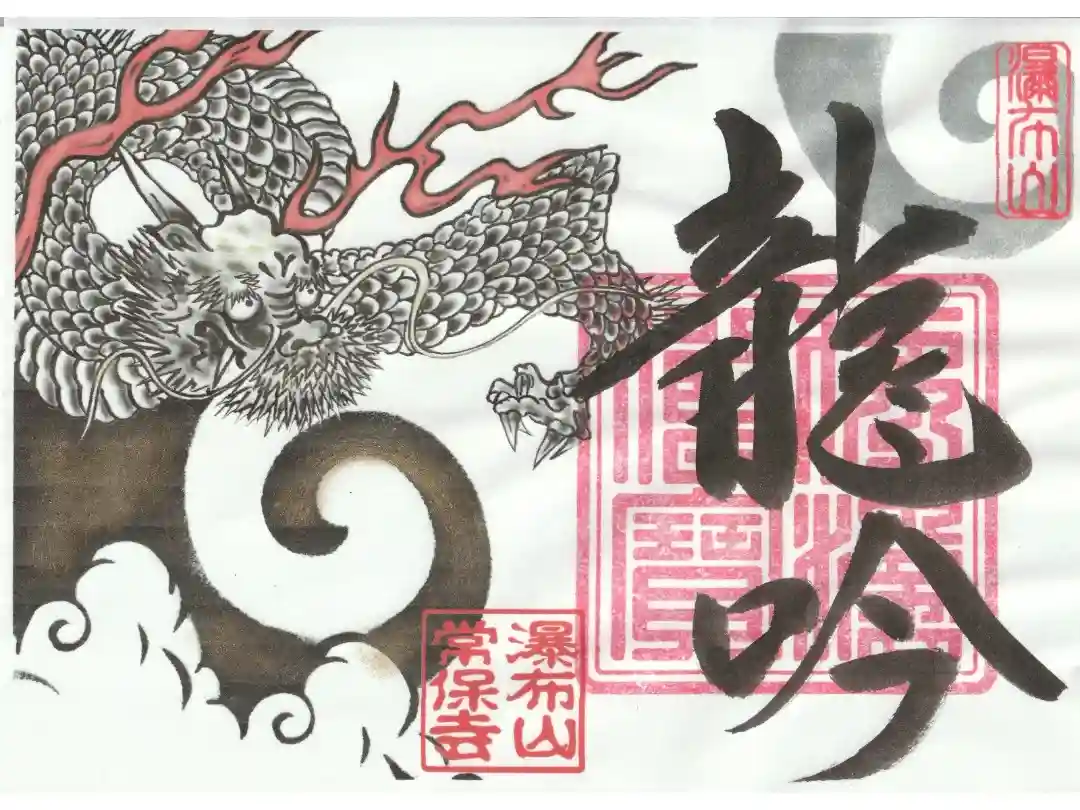 瀑布山
龍吟
瀑布山
常保寺